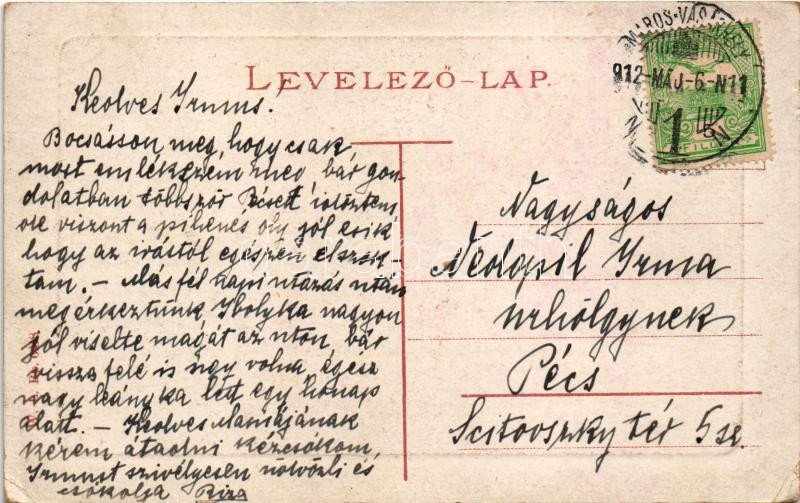 LEVELEZŐ-LAP.
MAROS-VÁSÁRHELY
912-MÁJ.-6-N11
1
FILLÉR
Kedves Irmus!
Bocsásson meg, hogy csak
most emlékezem meg bár gon-
dolatban többször Pécsett időztem
de viszont a pihenés oly jól esik
hogy az írástól egészen elszok-
tam. – Másfél napi utazás után
megérkeztünk Ibolyka nagyon
jól viselte magát az uton, bár
vissza felé is úgy volna, egész
nagy leányka lett egy hónap
alatt. – Kedves Mamájának
kérem átadni kézcsókom,
Irmust szivélyesen üdvözli és
csókolja Riza
Nagyságos
Nedopil Irma
urhölgynek
Pécs
Scitovszky tér 5 sz.